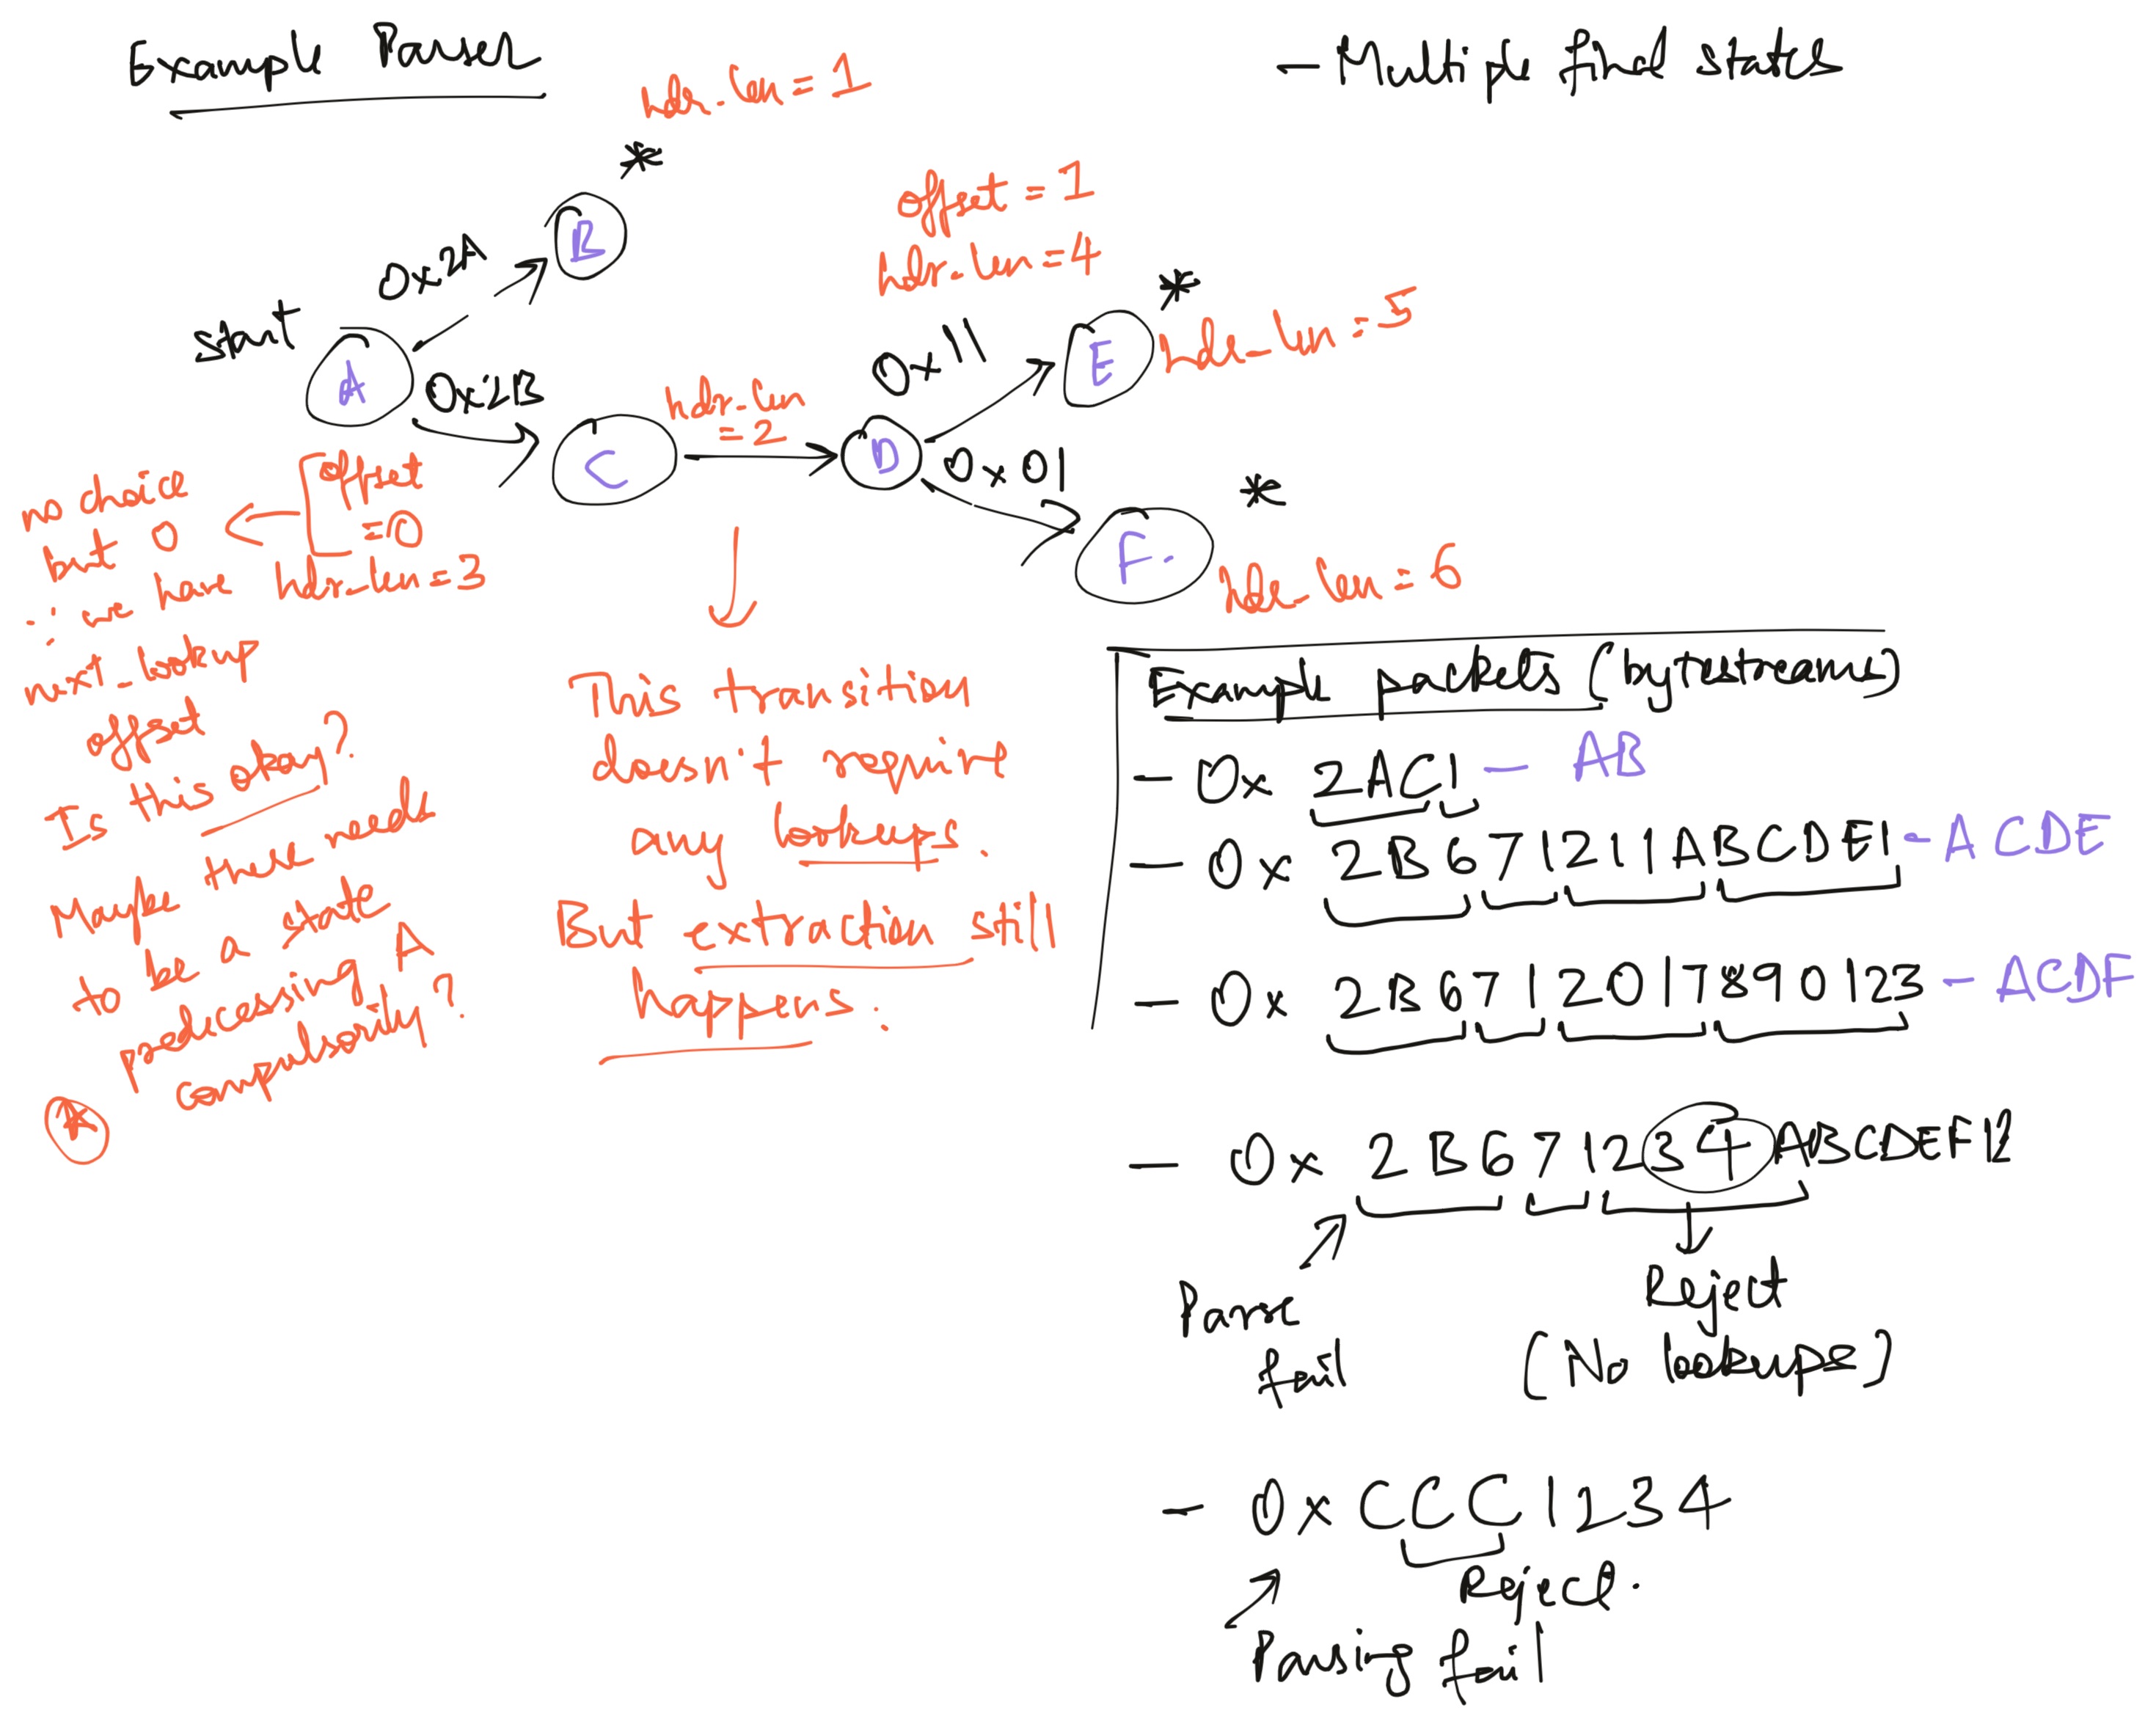 Example Parser
- Multiple final states
hdr_len = 1
*
B
0x2A
Start
A
0x2B
C
hdr_len
= 2
D
offset = 1
hdr_len = 4
0x11
*
E
hdr_len = 5
0x01
*
F
hdr_len = 6
offset
= 0
hdr_len = 3
no choice
but 0
∵ we have
next_lookup
offset
Is this okay?
Maybe there needs
to be a state
processing A
compulsorily?
*
This transition
doesn't require
any lookups.
But extraction still
happens.
Example packets (bytestreams)
- 0x 2AC1 - AB
- 0x 2B671211ABCDE1 - ACDE
- 0x 2B6712017890123 - ACDF
- 0x 2B671234ABCDEF12
Parse
fail
Reject
(No lookups)
- 0xCCC1234
Reject.
Parsing fail